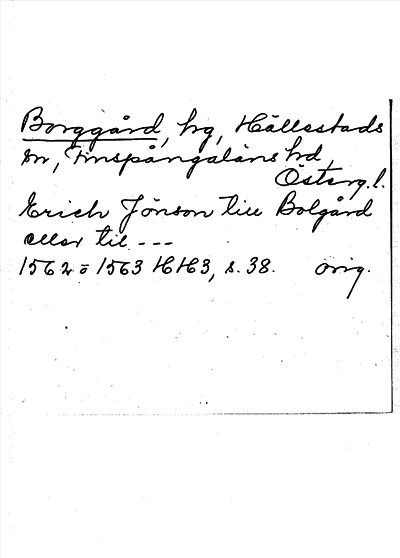 Borggård, hg, Hällestads
sn, Finspångaläns hd,
Österg.l.
Erich Jönson till Bolgård
eller til ---
1562 o 1563 HH3, s. 38. orig.